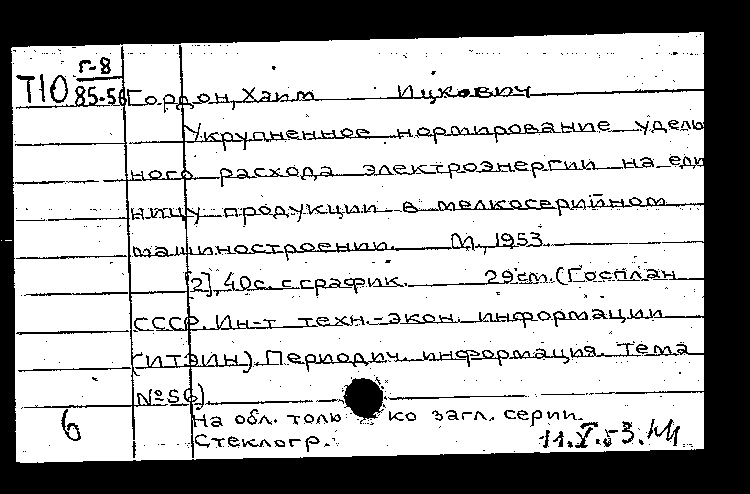 Г-8
Т10 85-56 Гордон, Хаим Ицкович
Укрупненное нормирование удель
ного расхода электроэнергии на еди
ницу продукции в мелкосерийном
машиностроении. М., 1953.
[2], 40с. с график. 29см. (Госплан
СССР. Ин-т техн.-экон. информации
(ИТЭИН). Периодич. информация. Тема
№56).
6 На обл. толь ко загл. серии.
Стеклогр.
11.V.53.